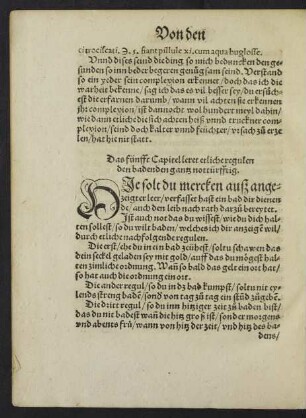 Von den
citrocilexti. Ʒ. s. fiant pillule xi. cum aqua buglosse.
Vnnd dises seind die ding, so mich beduncken den ge-
sunden so inn beder begeren genůg sam seind. Verstand
so ein yeder sein complexion erkennet / doch das ich die
warheit bekenne, sag ich das es vil besser sey / du ersůch-
est die erfarnen darumb / wann vil achten sie erkennen
jhr complexion / ist dannocht wol hundert meyl dahin /
wie dann etliche die sich achten heiß vnnd truckner com-
plexion / seind doch kalter vnnd feüchter / vrsach zů erze
len / hat hie nit statt.
Das fünfft Capitel leret etliche regulen
den badenden gantz notturfftig.
HIe solt du mercken auß ange-
zeigter leer / verfasset hast ein bad dir dienen
de / auch den leib nach rath darzů bereytet.
Ist auch not das du wissest / wie du dich hal-
ten sollest / so du wilt baden / welches ich dir anzeigen wil /
durch etliche nachfolgende regulen.
Die erst / ehe du in ein bad zeühest / soltu schawen das
dein seckel geladen sey mit gold / auff das du mögest hal-
ten zimliche ordnung. Wañ so bald das gelt ein ort hat /
so hat auch die ordnung ein ort.
Die ander regul / so du in dz bad kumpst / soltu nit ey-
lends streng badē / sond̓ von tag zů tag ein stūd zůgebē.
Die drit regul / so du inn hitziger zeit zů baden bist /
das du nit badest wañ die hitz groß ist / sonder morgens
vnd abents frů / wann von hitz der zeit / vnd hitz des ba-
dens /